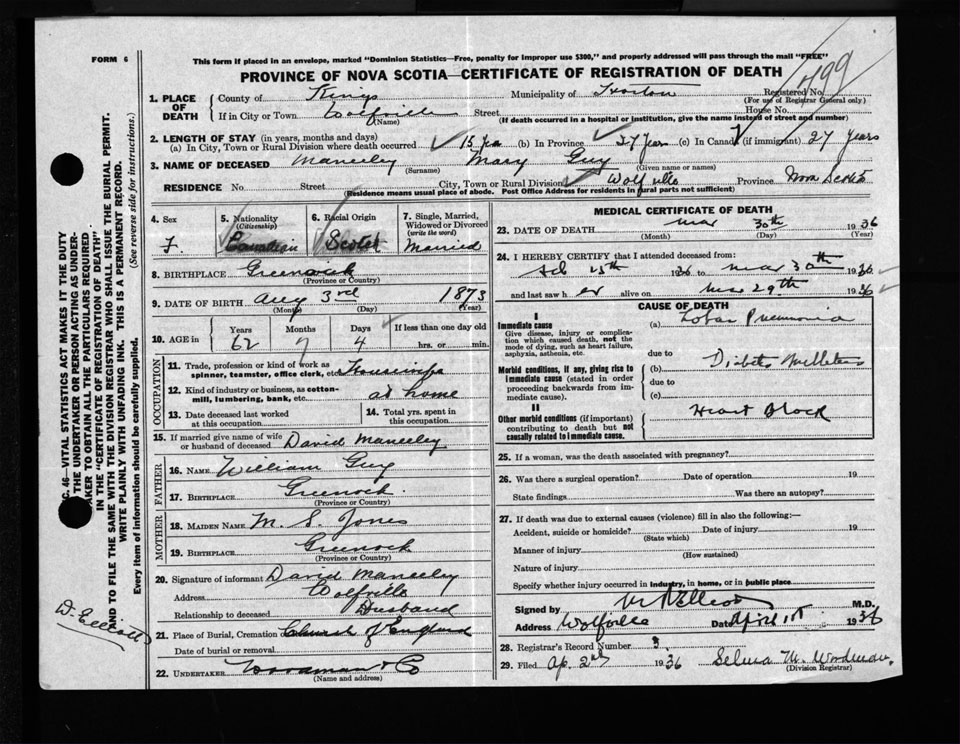 FORM 6
This form if placed in an envelope, marked "Dominion Statistics—Free, penalty for improper use $300," and properly addressed will pass through the mail "FREE"
PROVINCE OF NOVA SCOTIA—CERTIFICATE OF REGISTRATION OF DEATH
499
1. PLACE OF DEATH
County of Kings Municipality of Horton Registered No.
(For use of Registrar General only)
If in City or Town Wolfville Street House No.
(Name) (If death occurred in a hospital or institution, give the name instead of street and number)
2. LENGTH OF STAY (in years, months and days)
(a) In City, Town or Rural Division where death occurred 15 yrs (b) In Province 27 years (c) In Canada (if immigrant) 27 years
3. NAME OF DECEASED Maneeley Mary Guy
(Surname) (Given name or names)
RESIDENCE No. Street City, Town or Rural Division Wolfville Province Nova Scotia
(Residence means usual place of abode. Post Office Address for residents in rural parts not sufficient)
4. Sex 5. Nationality (Citizenship) 6. Racial Origin 7. Single, Married, Widowed or Divorced (write the word)
F. Canadian Scotch Married
8. BIRTHPLACE Greenock
(Province or Country)
9. DATE OF BIRTH Aug 3rd 1873
(Month) (Day) (Year)
10. AGE in Years Months Days If less than one day old
62 7 4 hrs. or min.
OCCUPATION
11. Trade, profession or kind of work as spinner, teamster, office clerk, etc. Housewife
12. Kind of industry or business, as cotton-mill, lumbering, bank, etc. at home
13. Date deceased last worked at this occupation 14. Total yrs. spent in this occupation
15. If married give name of wife or husband of deceased David Maneeley
FATHER
16. NAME William Guy
17. BIRTHPLACE Greenock
MOTHER
18. MAIDEN NAME M. S. Jones
19. BIRTHPLACE Greenock
(Province or Country)
20. Signature of informant David Maneeley
Address Wolfville
Relationship to deceased Husband
21. Place of Burial, Cremation Church of England
Date of burial or removal
22. UNDERTAKER Woodman & Co
(Name and address)
MEDICAL CERTIFICATE OF DEATH
23. DATE OF DEATH Mar 30th 1936
(Month) (Day) (Year)
24. I HEREBY CERTIFY that I attended deceased from:
25th 1936 to Mar 30th 1936
and last saw her alive on Mar 29th 1936
CAUSE OF DEATH
I
Immediate cause (a) Lobar Pneumonia
Give disease, injury or complication which caused death, not the mode of dying, such as heart failure, asphyxia, asthenia, etc.
due to
Morbid conditions, if any, giving rise to immediate cause (stated in order proceeding backwards from immediate cause). (b) Diabetes Mellitus
due to
(c)
II
Other morbid conditions (if important) contributing to death but not causally related to immediate cause. Heart Block
25. If a woman, was the death associated with pregnancy?
26. Was there a surgical operation? Date of operation 19
State findings Was there an autopsy?
27. If death was due to external causes (violence) fill in also the following:—
Accident, suicide or homicide? Date of injury 19
(State which)
Manner of injury
(How sustained)
Nature of injury
Specify whether injury occurred in industry, in home, or in public place
Signed by Elliott M.D.
Address Wolfville Date April 1st 1936
28. Registrar's Record Number 3
29. Filed Ap. 2nd 1936 Selma M. Woodman
(Division Registrar)
C. 46—VITAL STATISTICS ACT MAKES IT THE DUTY
THE UNDERTAKER OR PERSON ACTING AS UNDER-
TAKER TO OBTAIN ALL THE PARTICULARS REQUIRED
IN THE "CERTIFICATE OF REGISTRATION OF DEATH"
AND TO FILE THE SAME WITH THE DIVISION REGISTRAR WHO SHALL ISSUE THE BURIAL PERMIT.
WRITE PLAINLY WITH UNFADING INK. THIS IS A PERMANENT RECORD.
Every item of information should be carefully supplied. (See reverse side for instructions.)
D. Elliott